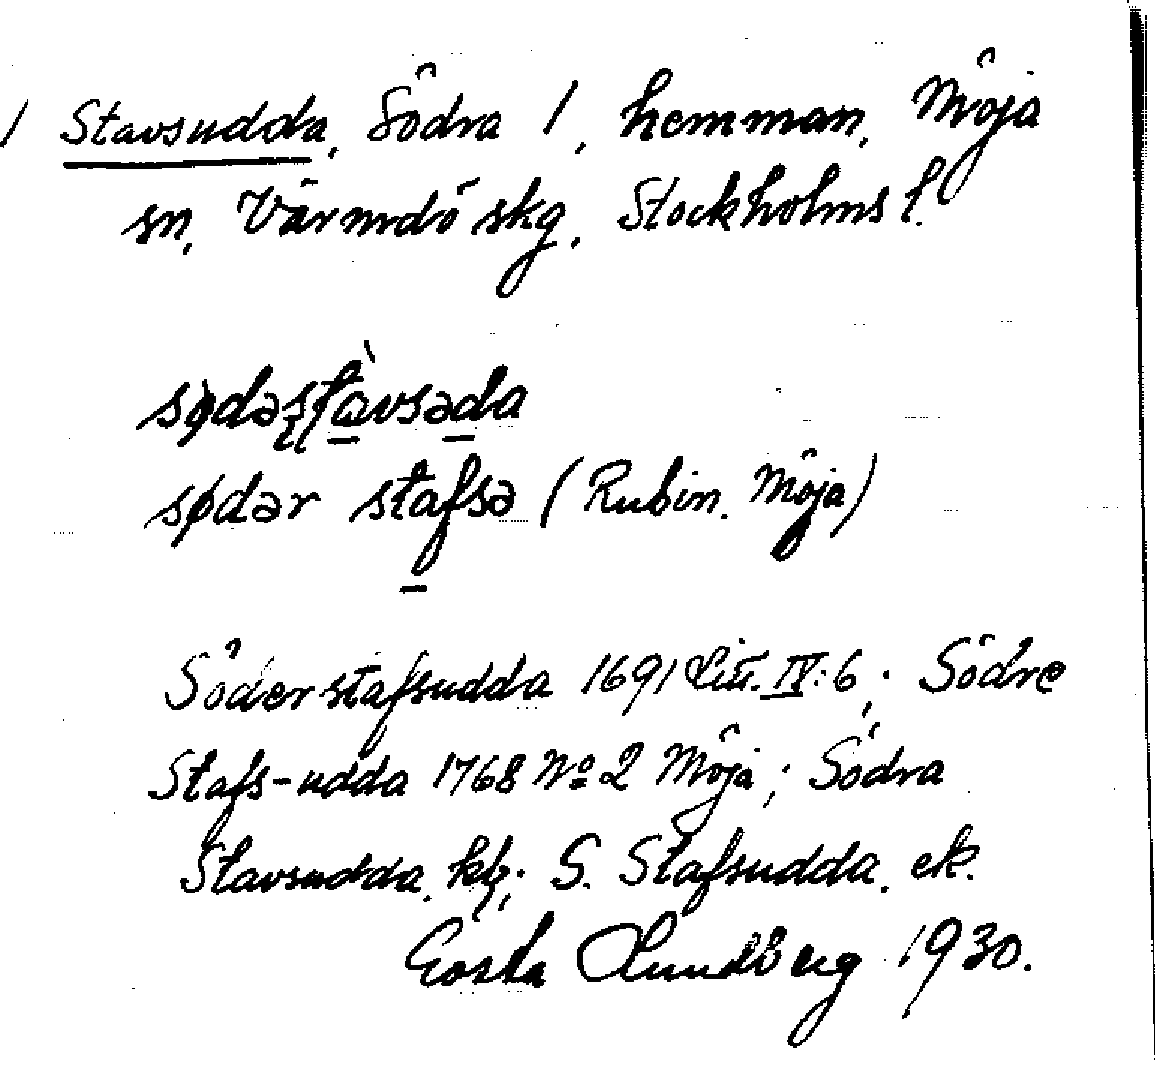 / Stavsudda, Södra 1, hemman, Möja
sn, Värmdö skg, Stockholms l.
sødəʂʈàvsəda
sødər stafsə (Rubin. Möja)
Söderstafsudda 1691 Litt. IV:6; Södre
Stafs-udda 1768 No 2 Möja; Södra
Stavsudda, kb; S. Stafsudda, ek.
Gösta Lundberg 1930.